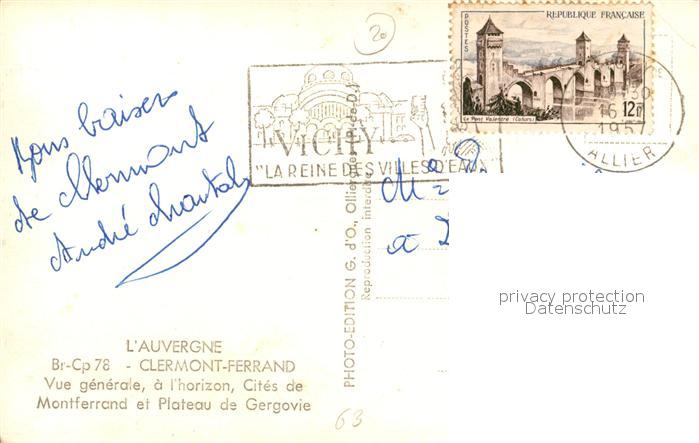 20
REPUBLIQUE FRANÇAISE
POSTES
Le Pont Valentré (Cahors)
12F
1957
ALLIER
VICHY
"LA REINE DES VILLES D'EAUX
Bons baisers
de Clermont
André Chantal
à
PHOTO-EDITION G. d'O.,
Reproduction interdite
L'AUVERGNE
Br-Cp 78 - CLERMONT-FERRAND
Vue générale, à l'horizon, Cités de
Montferrand et Plateau de Gergovie
63
privacy protection
Datenschutz